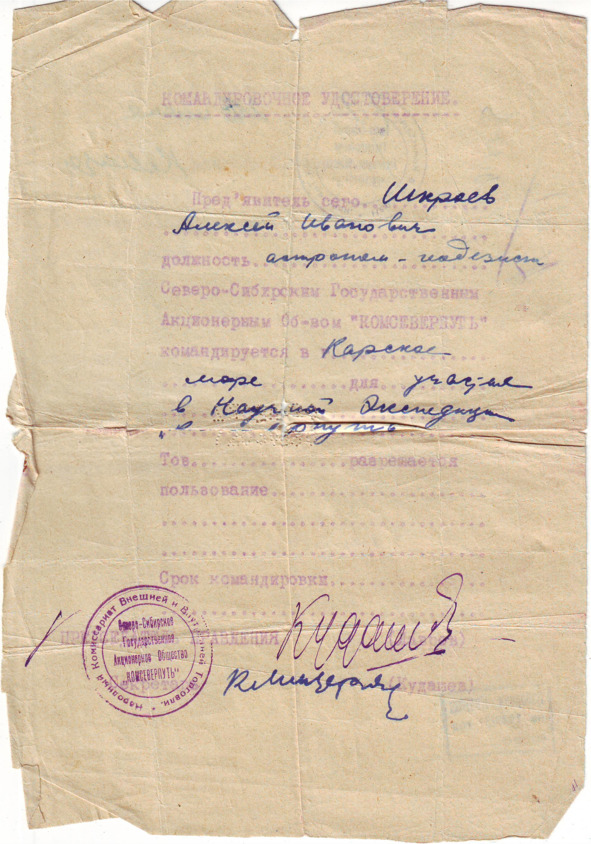 КОМАНДИРОВОЧНОЕ УДОСТОВЕРЕНИЕ.
Пред'явитель сего Шкраев
Алексей Иванович
должность астроном-геодезист
Северо-Сибирским Государственным
Акционерным Об-вом "КОМСЕВЕРПУТЬ"
командируется в Карское
море для участия
в Научной Экспедиции
Тов. разрешается
пользование
Срок командировки
УПРАВЛЕНИЯ Кудашев
(Кудашев)
Народный Комиссариат Внешней и Внутренней Торговли.
Северо-Сибирское
Государственное
Акционерное Общество
"КОМСЕВЕРПУТЬ"